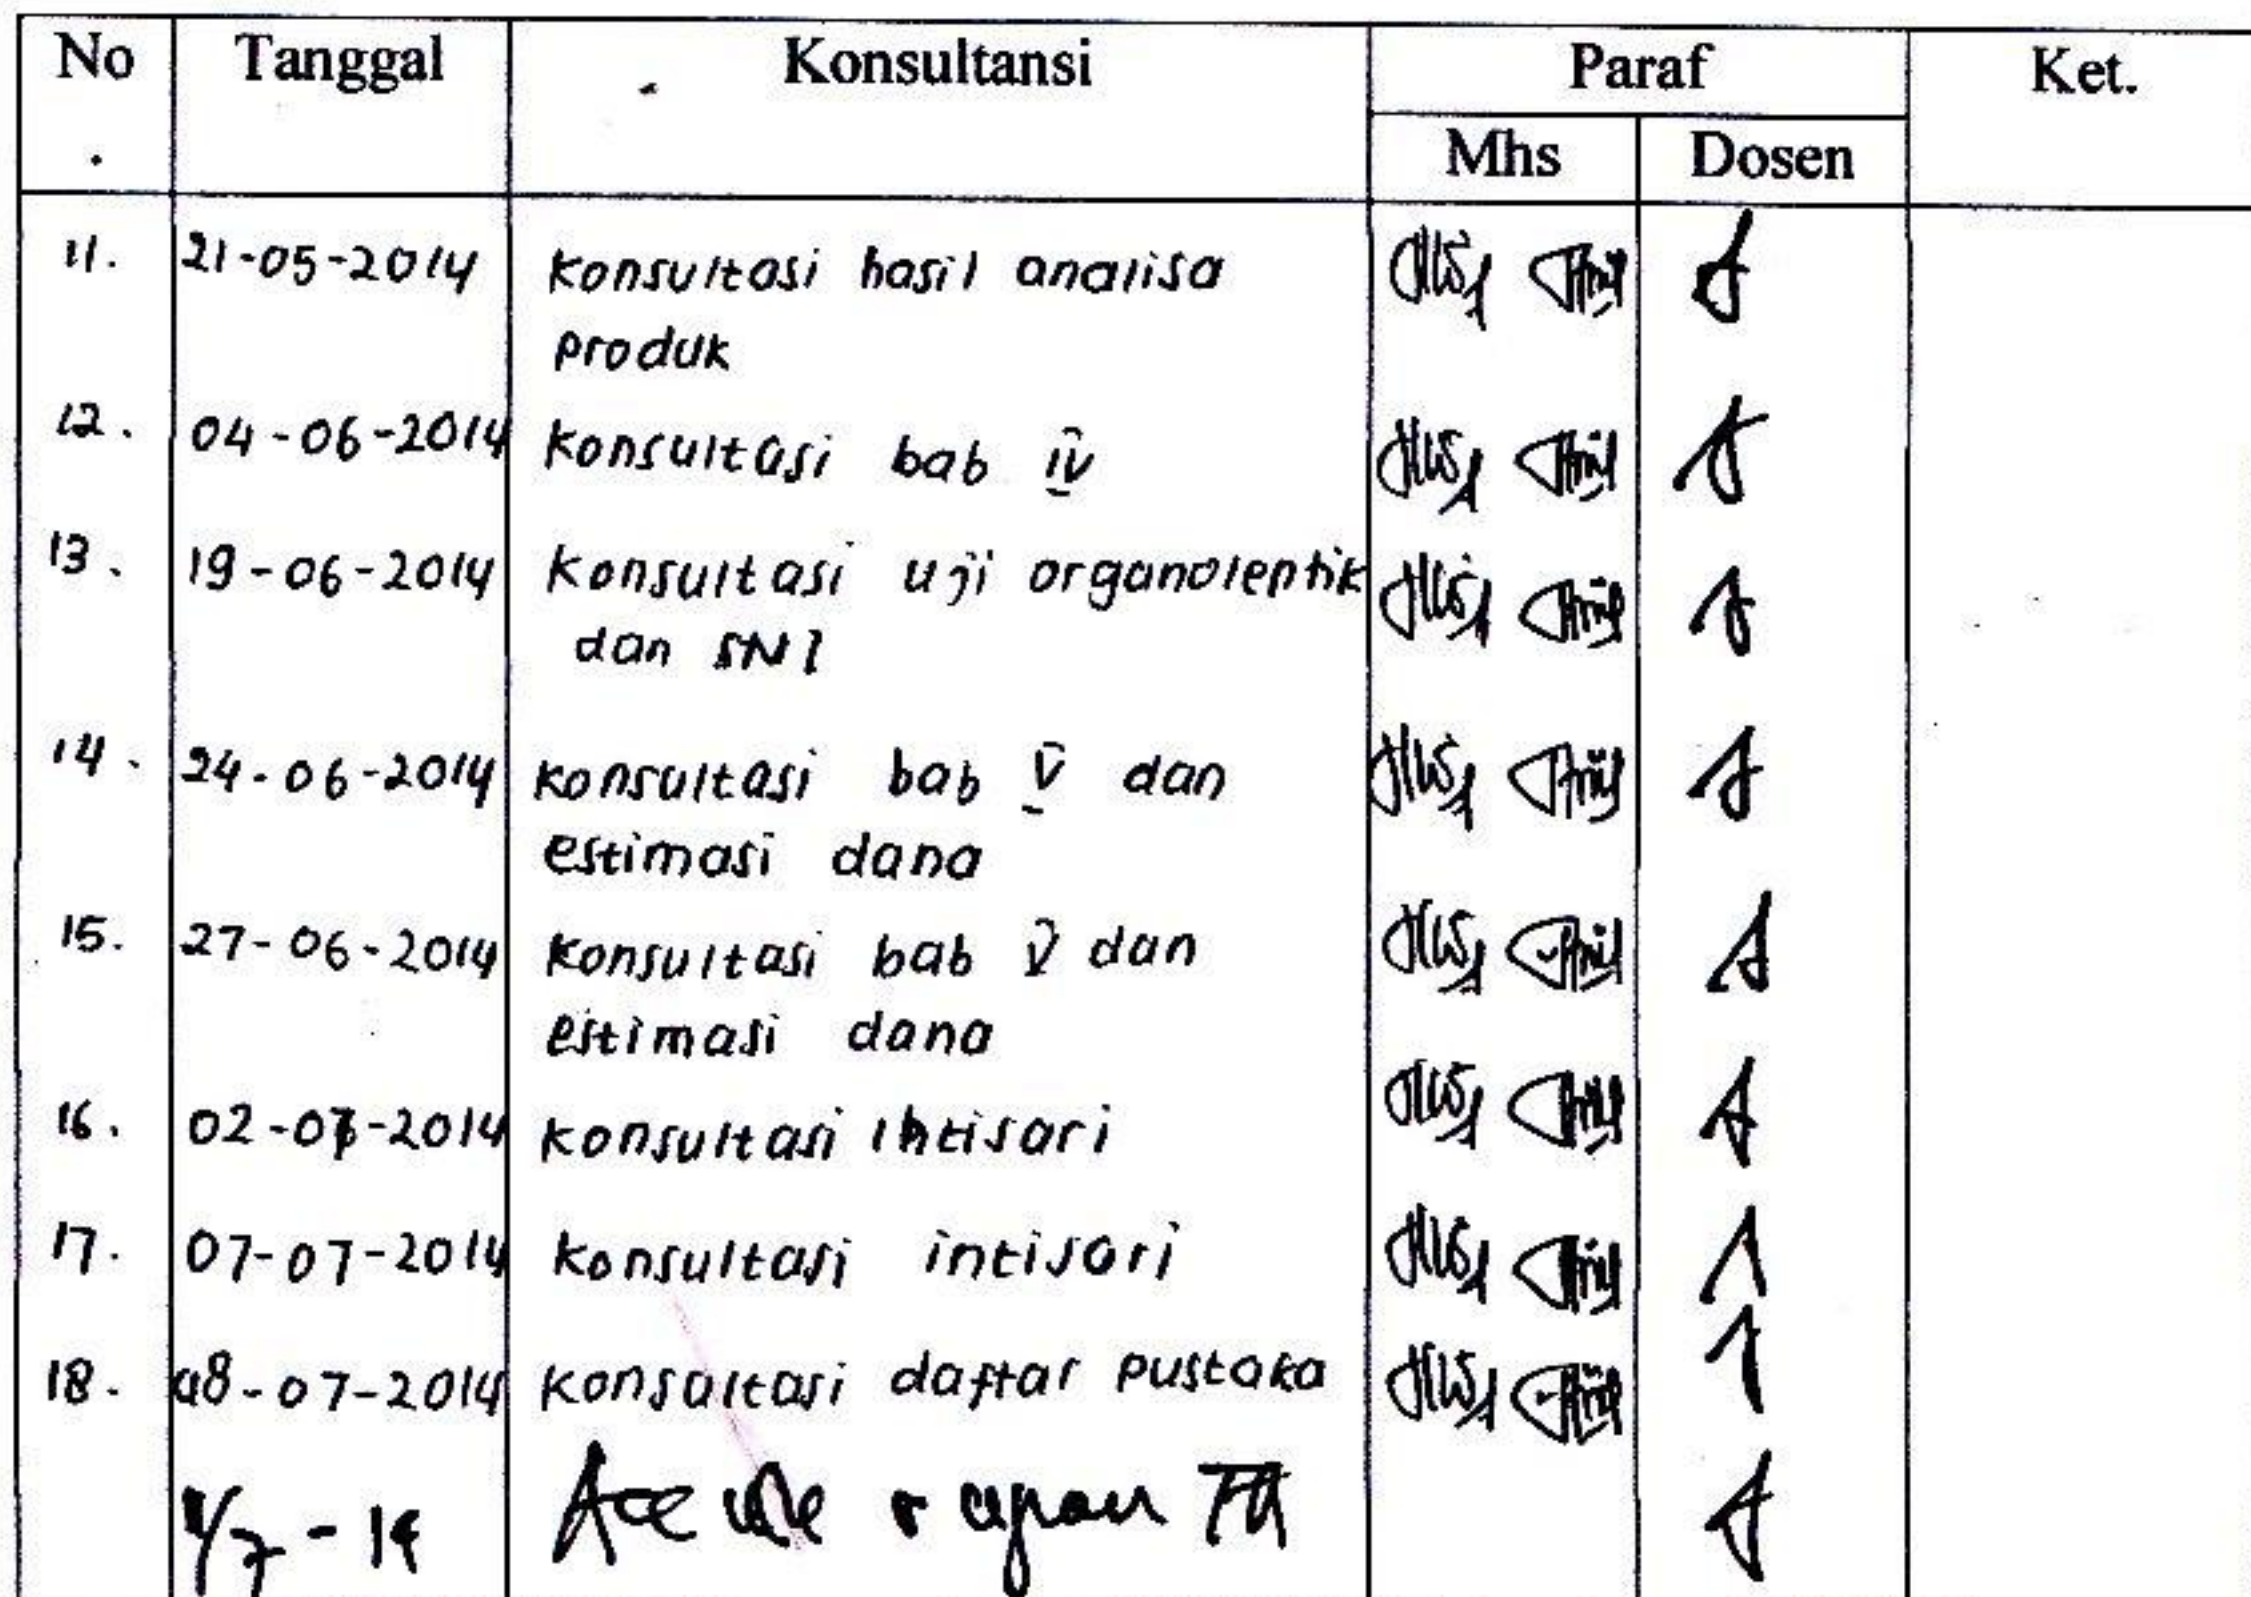 No Tanggal Konsultansi Paraf Ket.
. Mhs Dosen
11. 21-05-2014 Konsultasi hasil analisa
produk
12. 04-06-2014 Konsultasi bab IV
13. 19-06-2014 Konsultasi uji organoleptik
dan SNI
14. 24-06-2014 Konsultasi bab V dan
estimasi dana
15. 27-06-2014 Konsultasi bab V dan
estimasi dana
16. 02-07-2014 Konsultasi Intisari
17. 07-07-2014 Konsultasi intisari
18. 08-07-2014 Konsultasi daftar pustaka
Acc TA